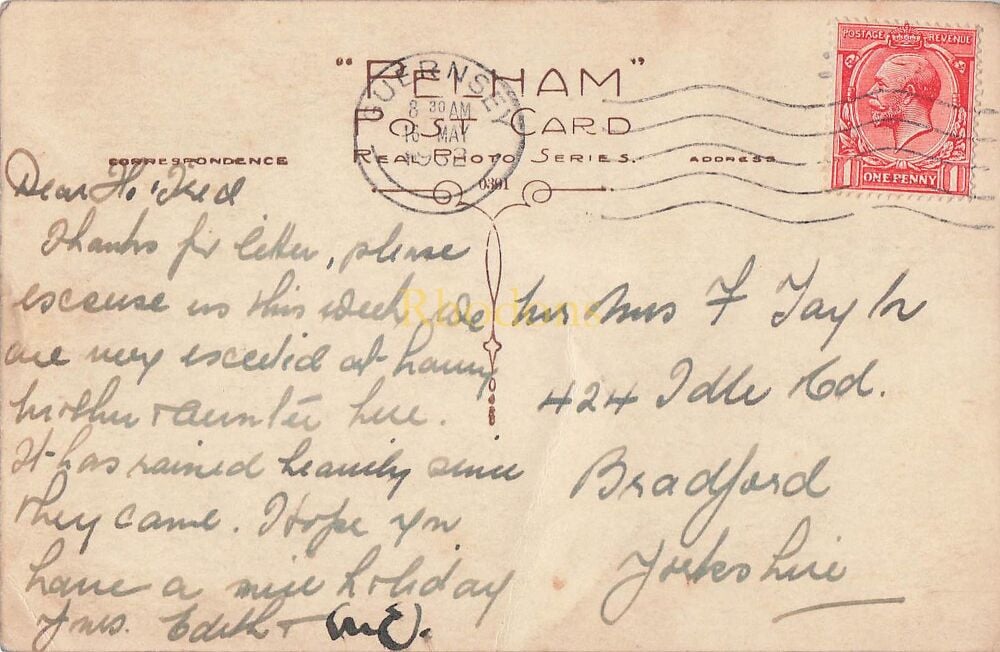 "PELHAM"
POST CARD
REAL PHOTO SERIES.
CORRESPONDENCE
ADDRESS
0391
GUERNSEY
8 30 AM
16 MAY
POSTAGE REVENUE
1 ONE PENNY 1
Rhodons
Dear H. Fred
Thanks for letter, please
excuse us this week, we
are very excited at having
mother + Auntie here.
It has rained heavily since
they came. I Hope you
have a nice holiday
Yrs. Edith +
Mr Mrs F Taylor
424 Idle Rd.
Bradford
Yorkshire